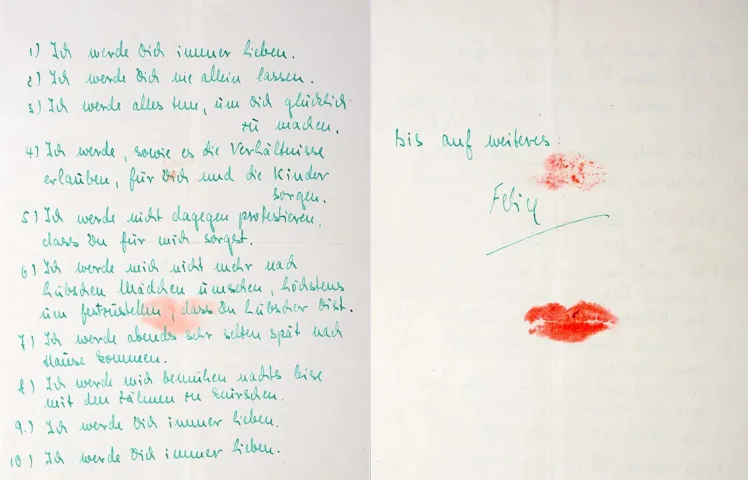 1) Ich werde Dich immer lieben.
2) Ich werde Dich nie allein lassen.
3) Ich werde alles tun, um Dich glücklich
zu machen.
4) Ich werde, sowie es die Verhältnisse
erlauben, für Dich und die Kinder
sorgen.
5) Ich werde nicht dagegen protestieren,
dass Du für mich sorgst.
6) Ich werde mich nicht mehr nach
hübschen Mädchen umsehen, höchstens
um festzustellen, dass Du hübscher bist.
7) Ich werde abends sehr selten spät nach
Hause kommen.
8) Ich werde mich bemühen nachts leise
mit den Zähnen zu knirschen.
9.) Ich werde Dich immer lieben.
10) Ich werde Dich immer lieben.
Bis auf weiteres:
Felice